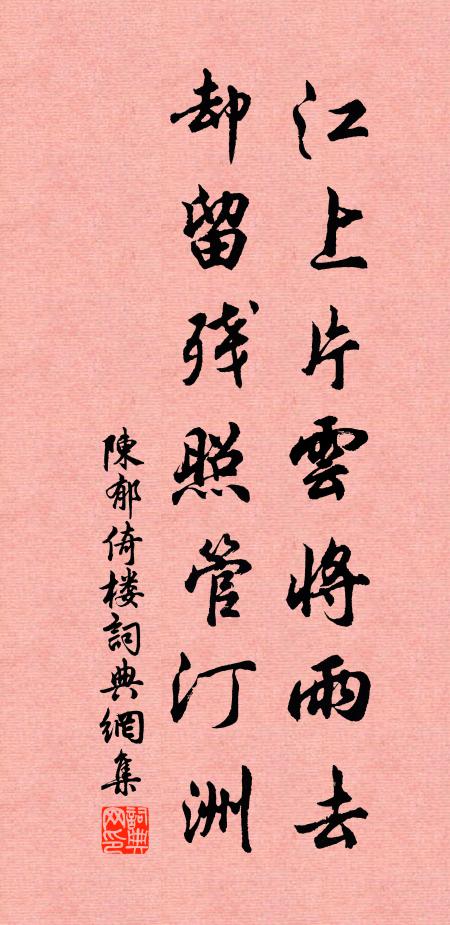 江上片雲將雨去
却留残照管汀洲
陳郁倚楼詞典網集
詞典网印